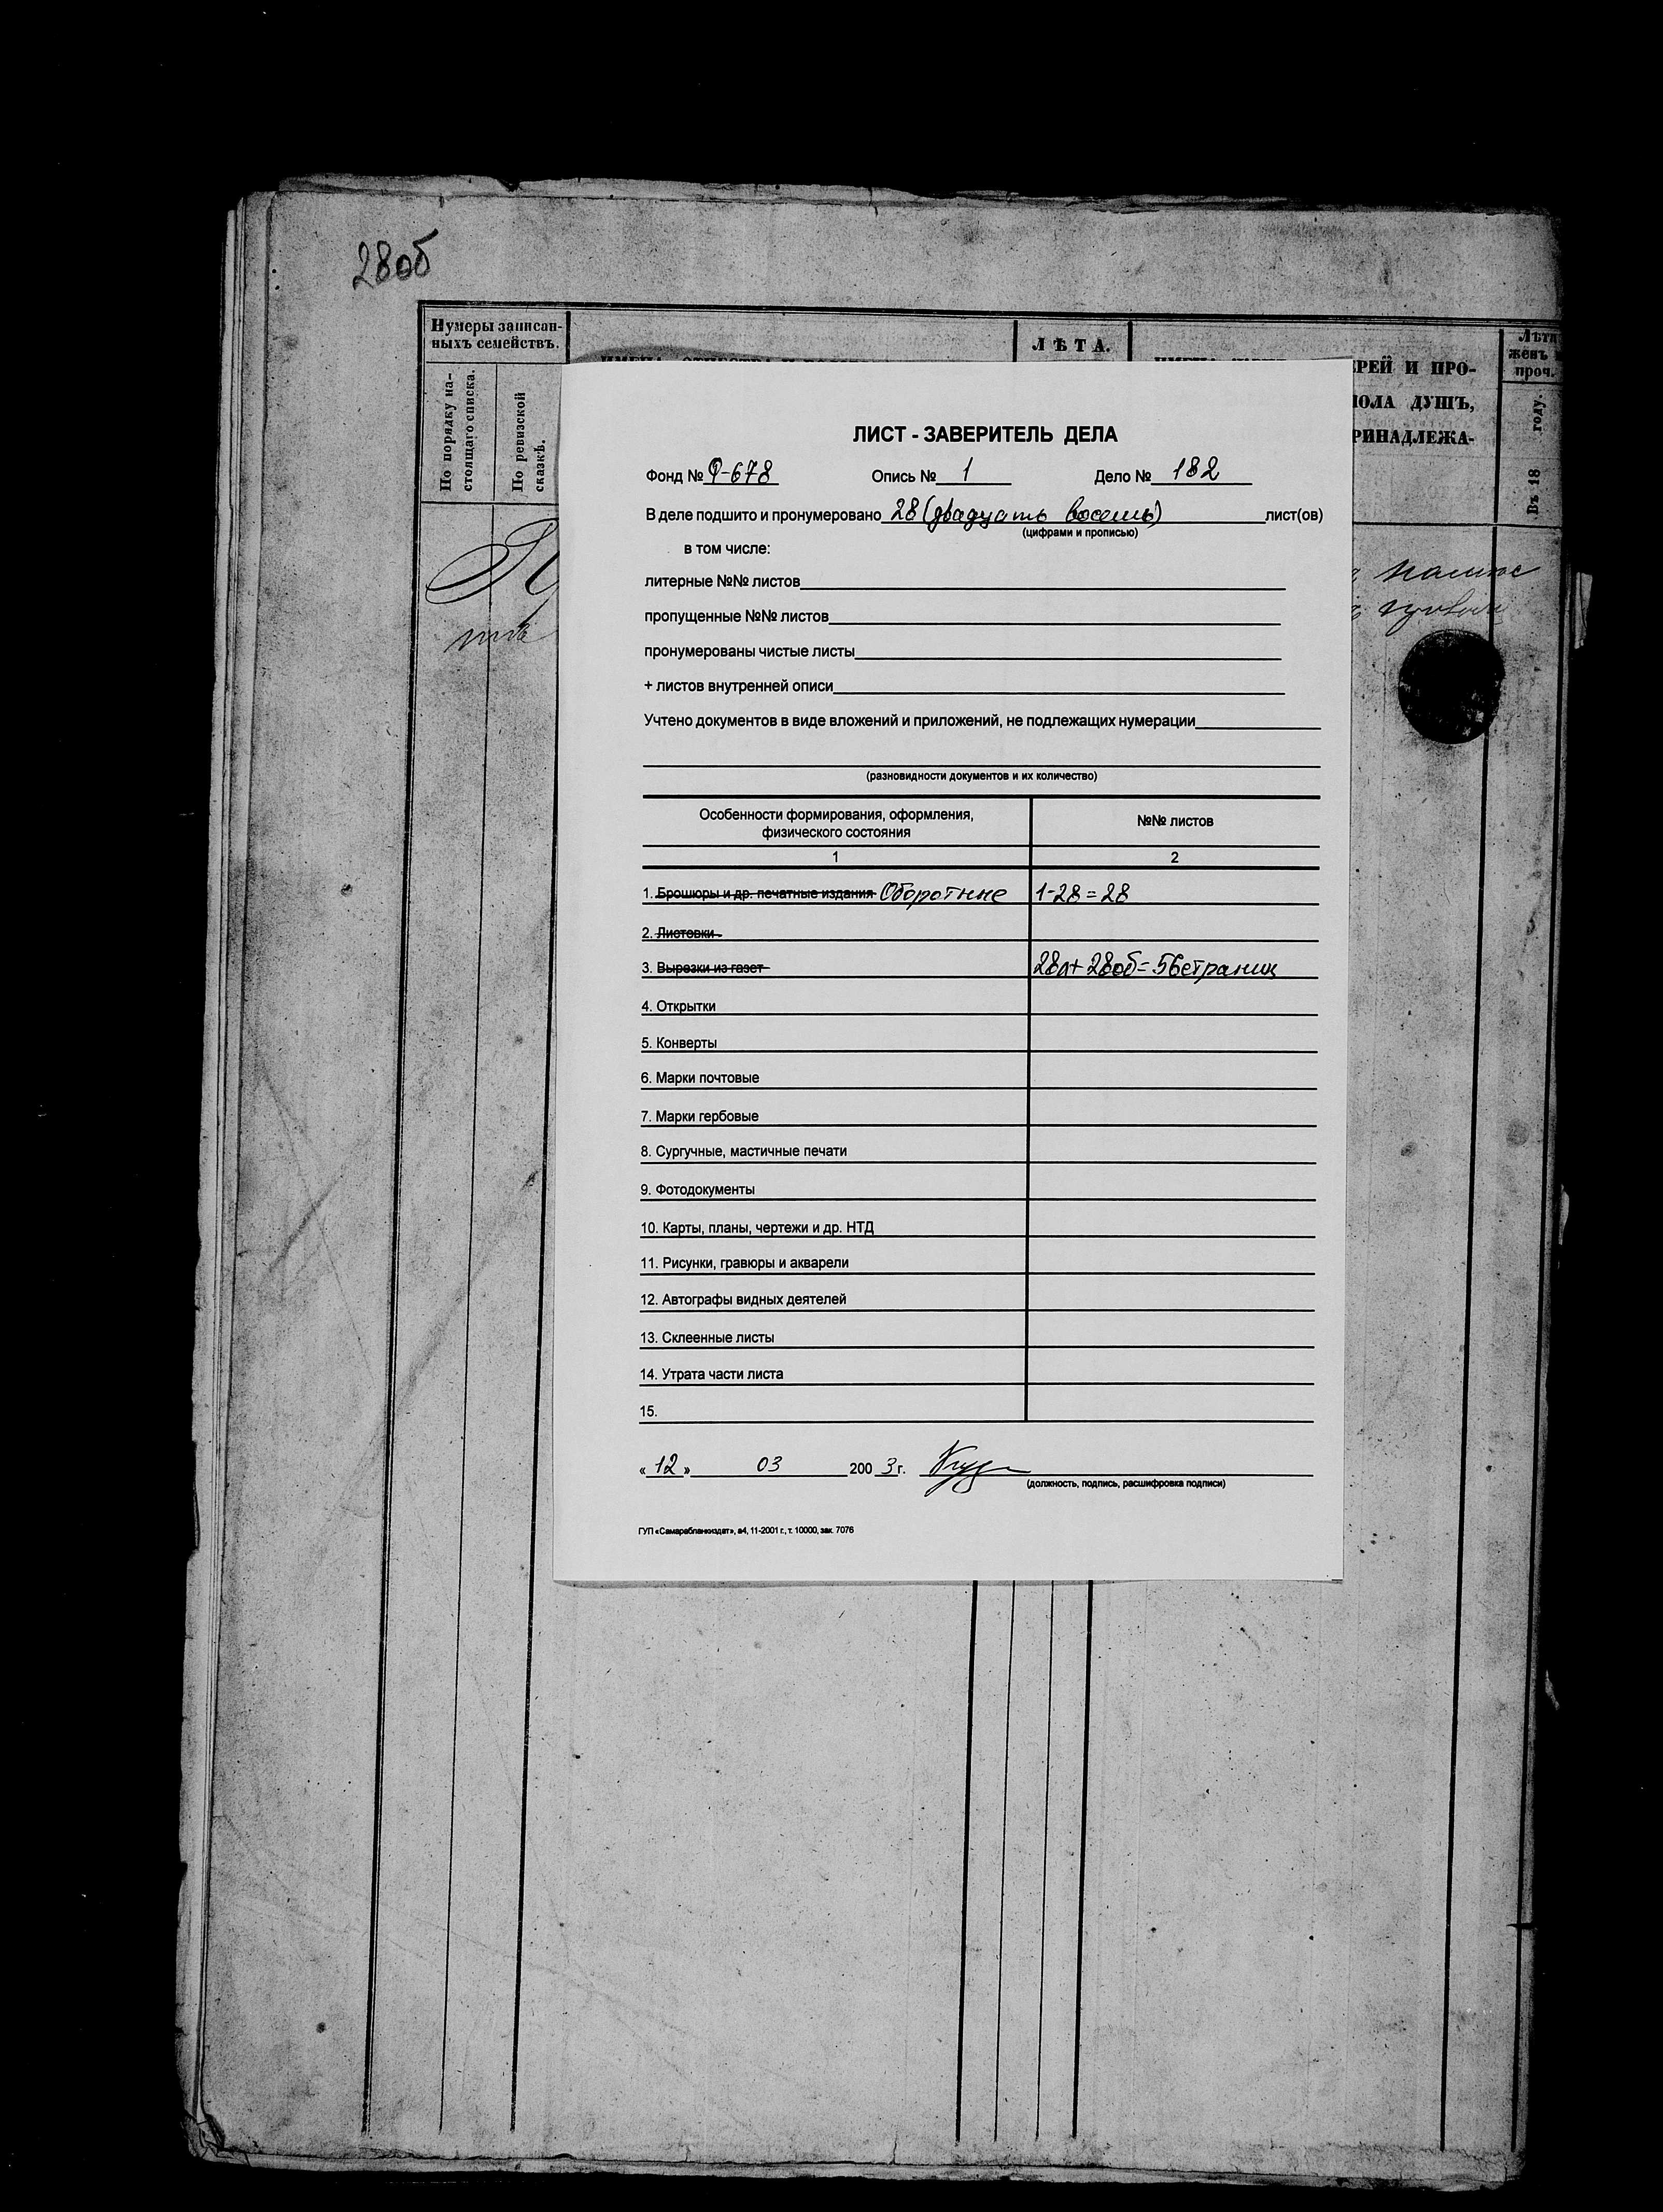 28об
Нумеры записан-
ныхъ семействъ.
По порядку на-
стоящаго списка.
По ревизской
сказкѣ.
ЛѢТА.
РЕЙ И ПРО-
ПОЛА ДУШЪ,
РИНАДЛЕЖА-
Лѣта
женъ
проч.
Въ 18 году.
ЛИСТ - ЗАВЕРИТЕЛЬ ДЕЛА
Фонд № Ф-678 Опись № 1 Дело № 182
В деле подшито и пронумеровано 28 (двадцать восемь) лист(ов)
(цифрами и прописью)
в том числе:
литерные №№ листов
пропущенные №№ листов
пронумерованы чистые листы
+ листов внутренней описи
Учтено документов в виде вложений и приложений, не подлежащих нумерации
(разновидности документов и их количество)
Особенности формирования, оформления,
физического состояния
№№ листов
1 2
1. Брошюры и др. печатные издания Оборотные 1-28=28
2. Листовки
3. Вырезки из газет 28л+28об=56страниц
4. Открытки
5. Конверты
6. Марки почтовые
7. Марки гербовые
8. Сургучные, мастичные печати
9. Фотодокументы
10. Карты, планы, чертежи и др. НТД
11. Рисунки, гравюры и акварели
12. Автографы видных деятелей
13. Склеенные листы
14. Утрата части листа
15.
« 12 » 03 2003 г.
(должность, подпись, расшифровка подписи)
ГУП «Самарабланкиздат», а4, 11-2001 г., т. 10000, зак. 7076